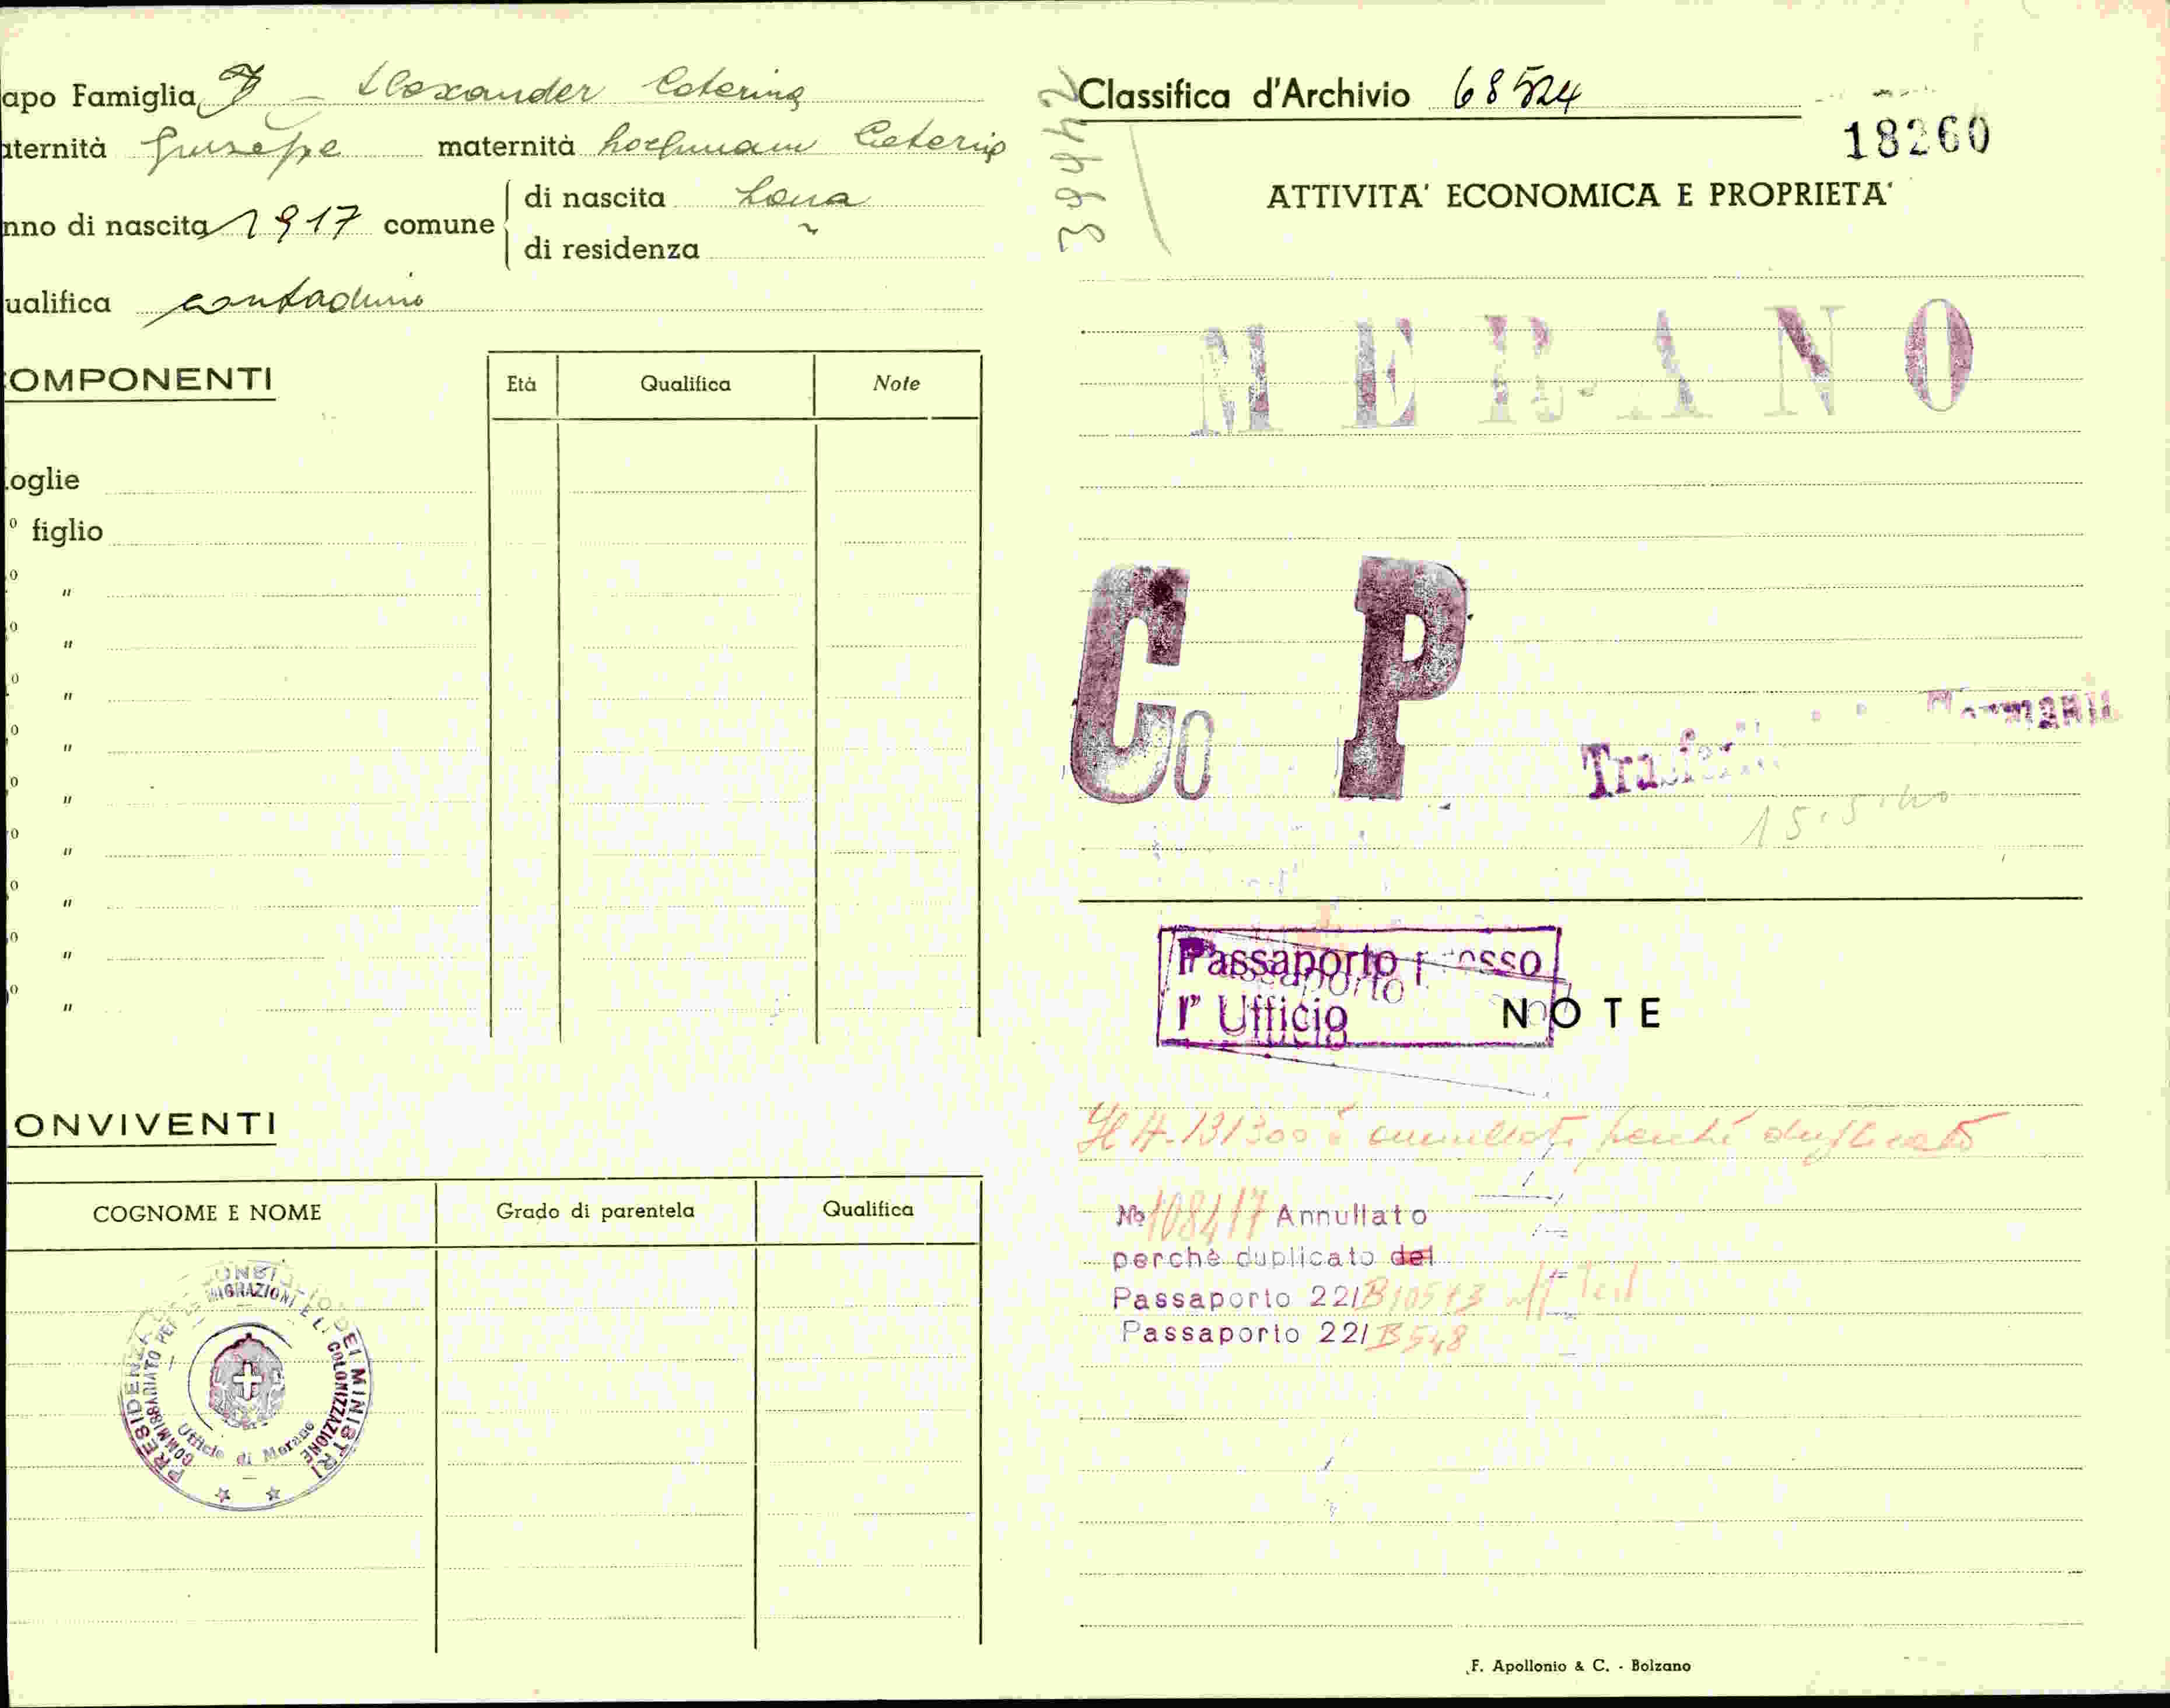 apo Famiglia Alexander Caterina
aternità Giuseppe maternità Caterina
nno di nascita 1917 comune di nascita Lana
di residenza "
ualifica contadino
OMPONENTI
Età Qualifica Note
oglie
° figlio
° "
° "
° "
° "
° "
° "
° "
° "
° "
ONVIVENTI
COGNOME E NOME Grado di parentela Qualifica
PRESIDENZA DEL CONSIGLIO DEI MINISTRI
COMMISSARIATO PER LE MIGRAZIONI E LA COLONIZZAZIONE
Ufficio di Merano
394442
Classifica d'Archivio 68524
18260
ATTIVITA' ECONOMICA E PROPRIETA'
MERANO
Co P
Trasferit Germania
15.5.40
Passaporto presso
l' Ufficio
NOTE
Il H. 131300 è annullato perché duplicato
No 108417 Annullato
perchè duplicato del
Passaporto 221 B10543
Passaporto 221 B548
F. Apollonio & C. - Bolzano